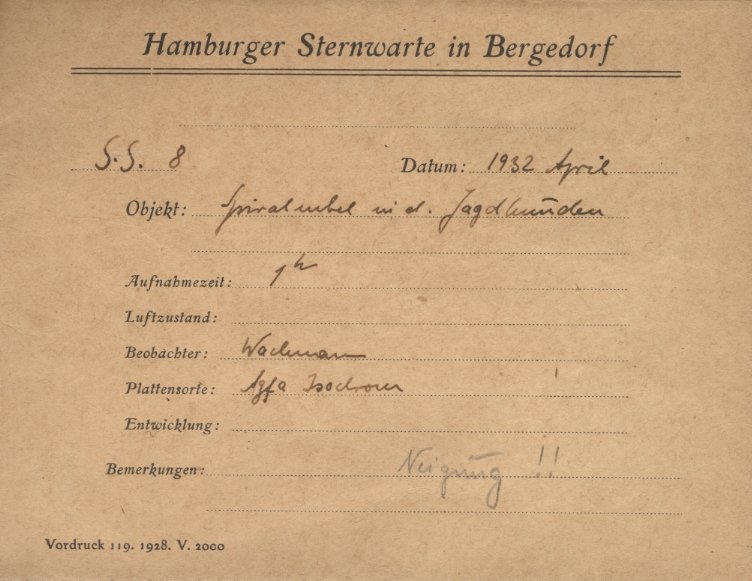 Hamburger Sternwarte in Bergedorf
S.S. 8 Datum: 1932 April
Objekt: Spiralnebel in d. Jagdhunden
Aufnahmezeit: 1h
Luftzustand:
Beobachter: Wachmann
Plattensorte: Agfa Isochrom
Entwicklung:
Bemerkungen: Neigung !!
Vordruck 119. 1928. V. 2000